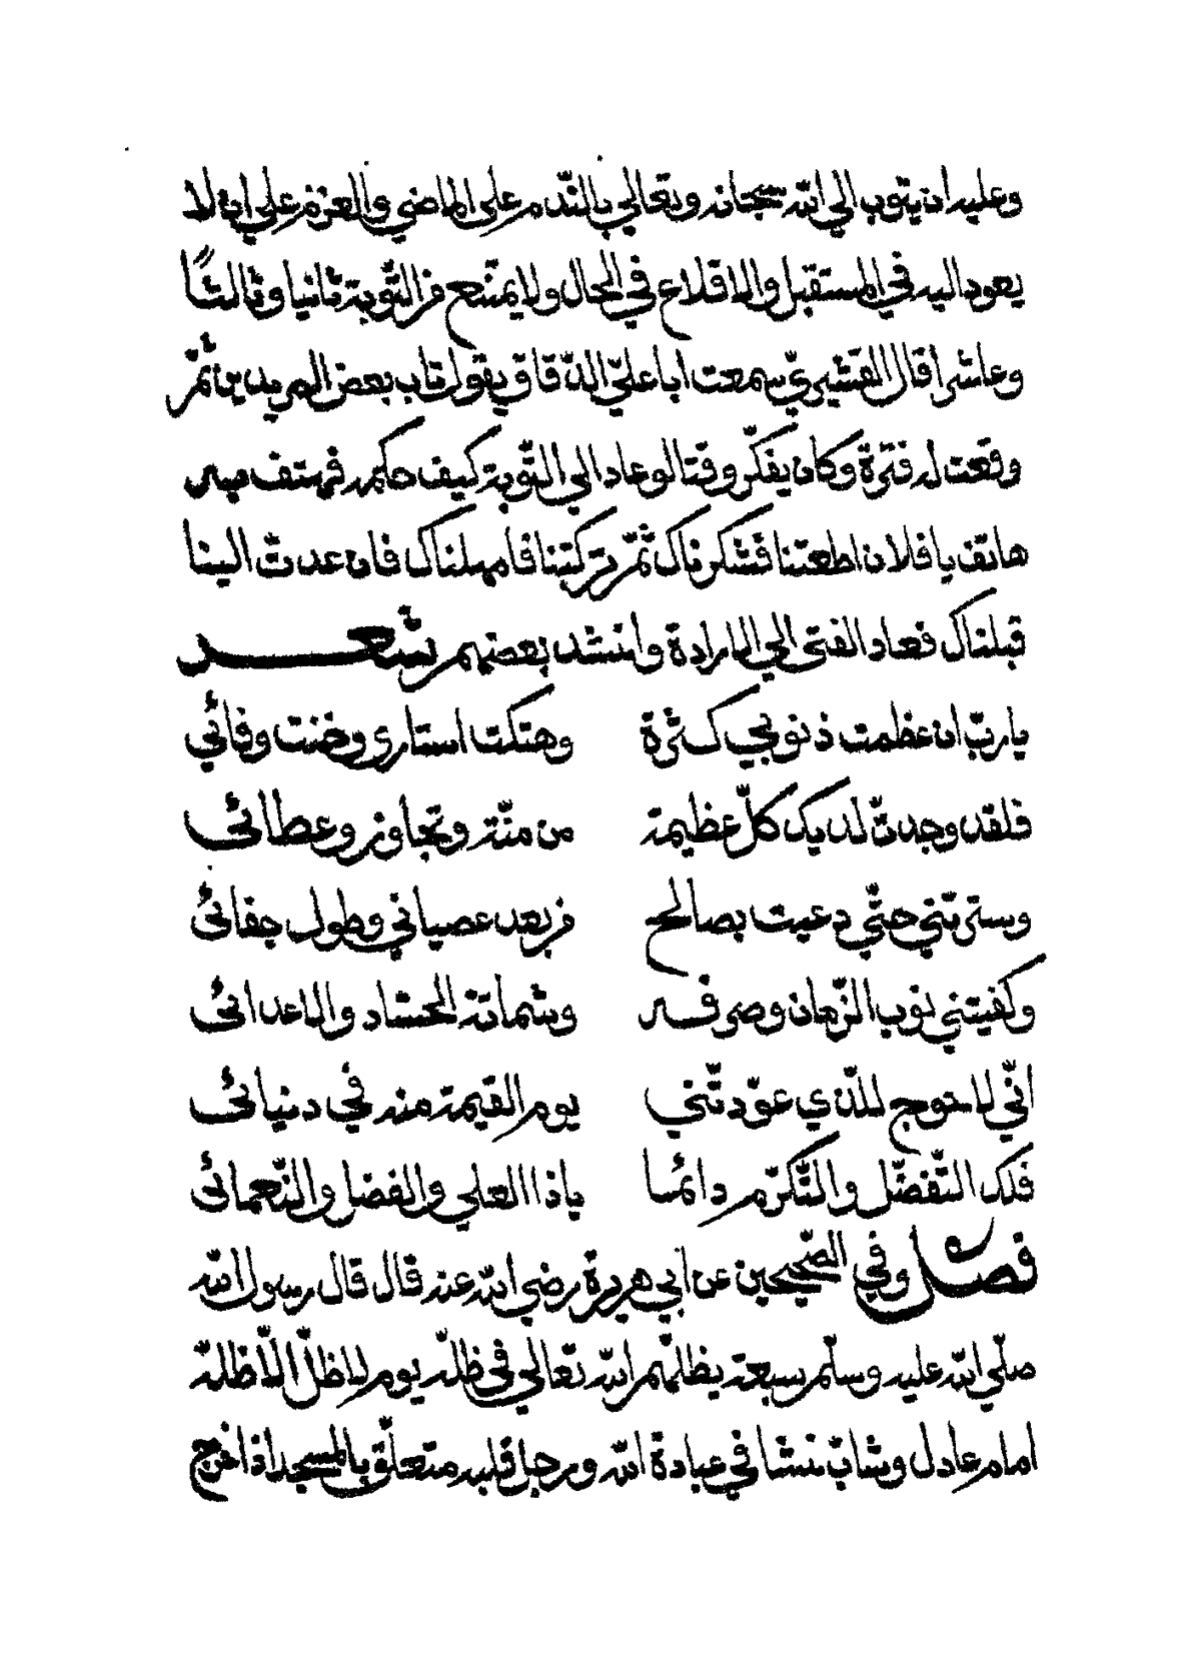 وعليه ان يتوب الي الله سبحانه وتعالي بالنّدم علي الماضي والعزم علي ان لا
يعود اليه في المستقبل والاقلاع في الحال ولا يمتنع من التّوبة ثانيا وثالثًا
وعاشرا قال القشيريّ سمعت ابا عليّ الدّقاق يقول تاب بعض المريدين ثمّ
وقعت له فترة وكان يفكّر وقتا لو عاد الي التّوبة كيف حكمه فهتف به
هاتف يا فلان اطعتنا فشكرناك ثمّ تركتنا فامهلناك فان عدت الينا
قبلناك فعاد الفتى الي الارادة وانشد بعضهم شعر
يا ربّ ان عظمت ذنوبي كثرة وهتكت استاري وخنت وفائي
فلقد وجدتّ لديك كلّ عظيمة من منّة وتجاوز وعطائى
وسترتني حتّي دعيت بصالح من بعد عصياني وطول جفائى
وكفيتني نوب الزّمان وصرفه وشماتة الحسّاد والاعدائى
انّي لاحوج للّذي عوّدتّني يوم القيمة منه في دنيائى
فلك التّفضّل والتّكرّم دائما ياذا العلي والفضل والنّعمائى
فصل وفي الصّحيحين عن ابي هريرة رضي الله عنه قال قال رسول الله
صلّي الله عليه وسلّم سبعة يظلّهم الله تعالي في ظلّه يوم لا ظلّ الّا ظلّه
امام عادل وشابّ نشا في عبادة الله ورجل قلبه متعلّق بالمسجد اذا خرج